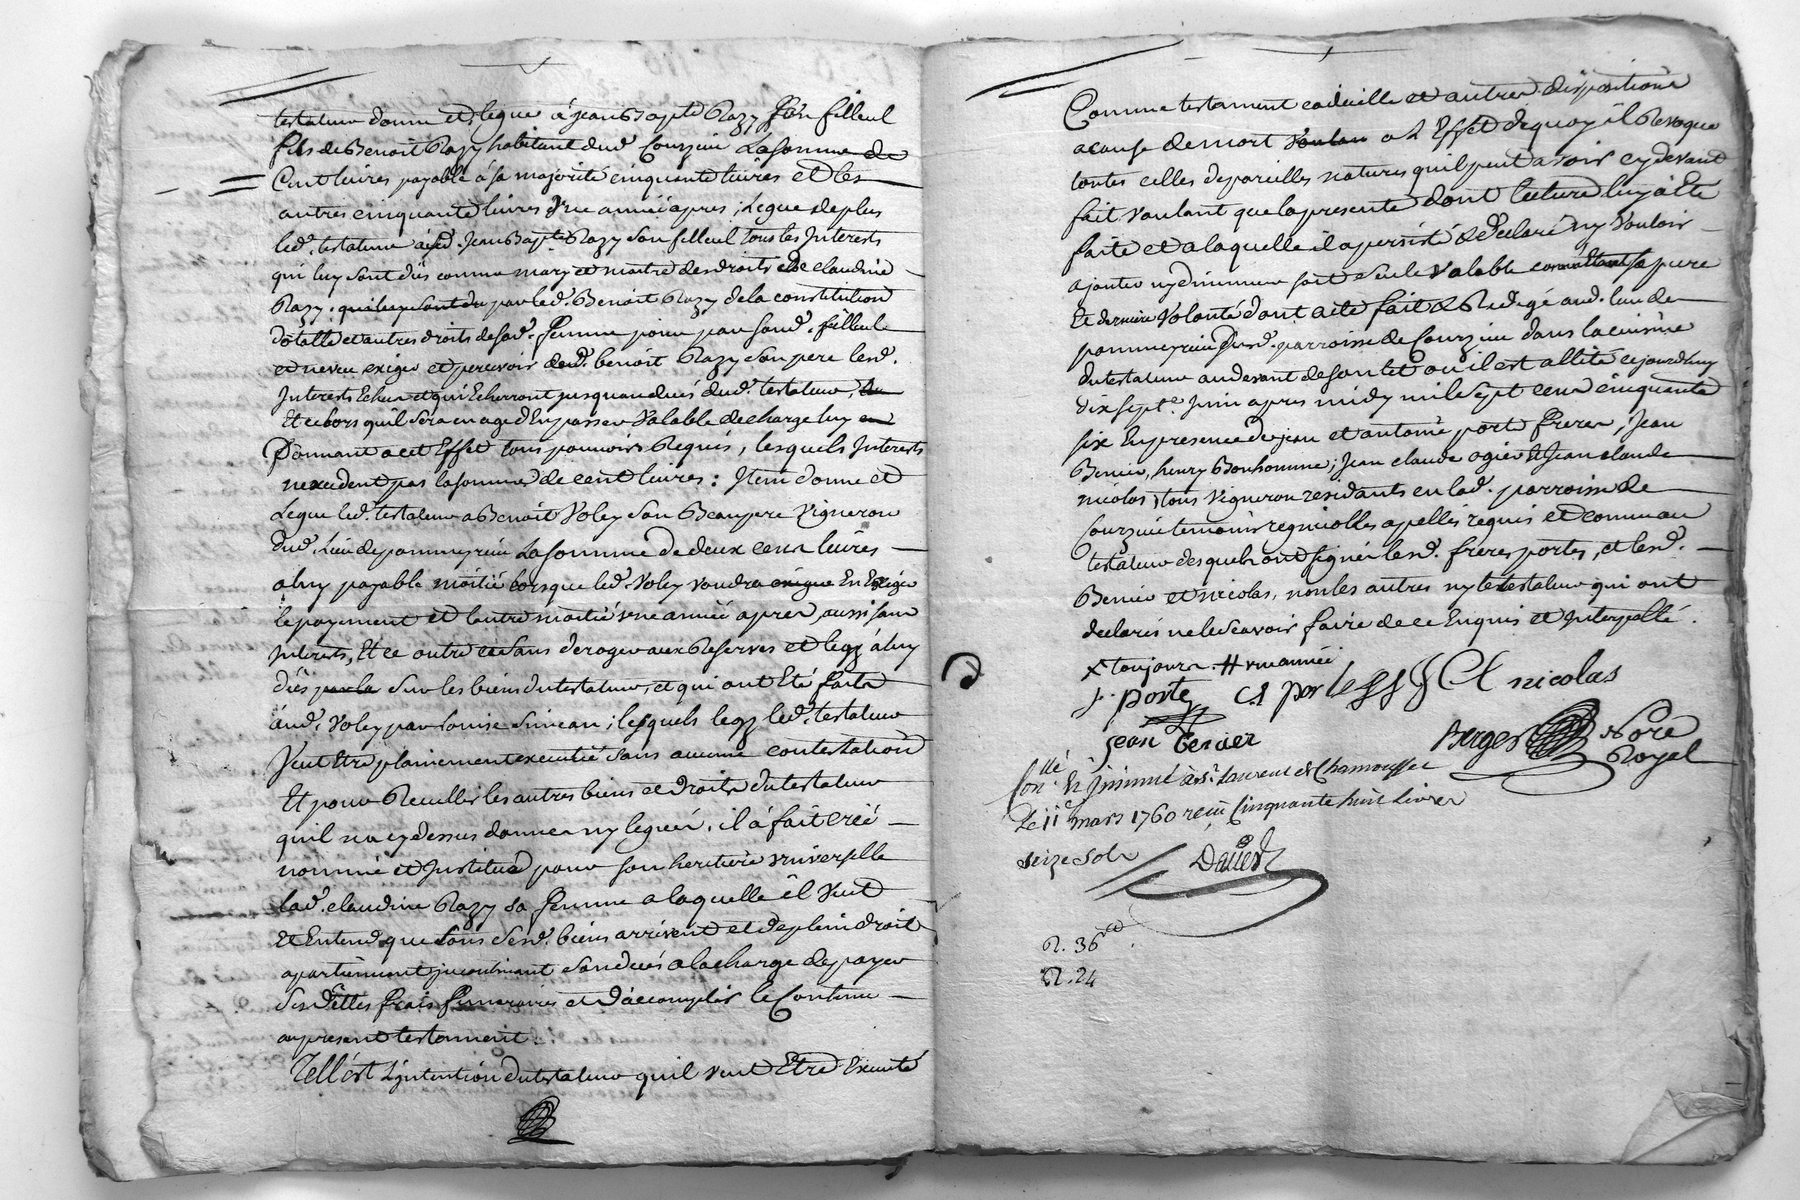 testateur donne et legue a jean Bapte Razy son filleul
fils de Benoit Razy habitant dud. Courzieu la somme de
Cent livres payable a sa majorité cinquante livres et les
autres cinquante livres une année apres ; legue de plus
led. testateur aud. Jean Bapte Razy son filleul tous les Interests
qui luy sont dus comme mary et maitre des droits de claudine
Razy : qui luy sont du par led. Benoit Razy de la constitution
dotalle et autres droits de sad. femme pour par sond. filleul
et neveu exiger et percevoir dud. benoit Razy son pere lesd.
Interests Echus et qui Echerront jusquau deces dud. testateur,
Et ce lors quil sera en age d'En passer valable decharge luy en
Donnant a cet Effet tous pouvoirs Requis, lesquels Interests
nexcedent pas la somme de cent livres : Item donne et
Legue led. testateur a Benoit Voley son Beaupere Vigneron
dud. Lieu de pommeyrieu La somme de deux cens livres
a luy payable moitié lorsque led. Voley voudra exiger En Exiger
le payement et lautre moitié une année apres aussi sans
Interests, Et ce outre et sans deroger aux Reserves et legs a luy
dus par la sur les biens du testateur, et qui ont Eté faits
aud. Voley par Louise ; lesquels legs led. testateur
Veut Etre plainement executé sans aucune contestation
Et pour Recuillir les autres biens et droits du testateur
quil na cy dessus donnes ny legués, il a fait créé
nommé et Institué pour son heritiere universelle
lad. claudine Razy sa femme a laquelle il veut
Et Entend que tous sesd. biens arrivent et de plein droit
apartiennent jncontinant son decés a la charge de payer
ses dettes frais funeraires et d'accomplir le Contenu
au present testament.
Tell'est L'jntention du testateur quil veut Etre Executé
Comme testament codicille et autres dispositions
a cause de mort voulan a L'Effet de quoy il Revoque
toutes celles de pareilles natures quil peut avoir cy devant
fait voulant que la presente dont lecture luy a Eté
faite et a laquelle il a persisté & declaré ny vouloir
ajouter ny diminuer soit seule valable sa pure
Et derniere Volonté dont acte fait & Redigé aud. lieu de
pommeyrieu susd. parroisse de Courzieu dans la cuisine
du testateur au devant de son lit ou il est allité cejourdhuy
dix sept.e Juin apres midy mil sept cens cinquante
six En presence de jean et antoine porte freres ; Jean
Benier, henry Bonhomme ; Jean claude ogier Et Jean claude
nicolas, tous vignerons residants en lad. parroisse de
Courzieu temoins regnicolles apellés requis et connus au
testateur desquels ont signé lesd. freres portes, et lesd.
Benier et nicolas, non les autres ny le testateur qui ont
declarés ne le scavoir faire de ce Enquis et Interpellé.
x toujours. # une année
j. porte C. A porte J C nicolas
jean benier
Berger Nore Royal
Con.llé Et Jnsinué a St Laurent de Chamousset
Le 11e mars 1760 reçu Cinquante huit livres
seize sols
R. 36
R. 24